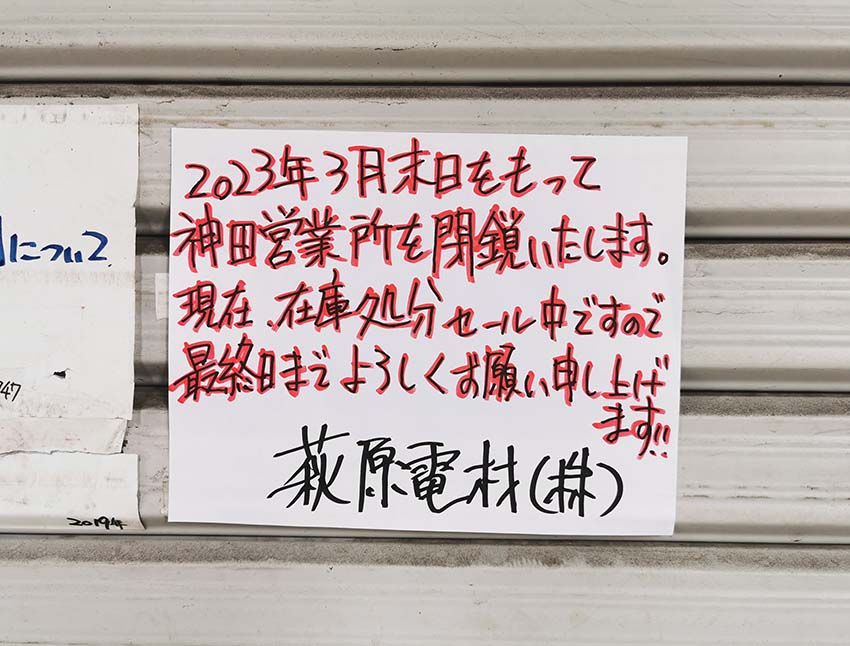 2023年3月末日をもって
神田営業所を閉鎖いたします。
現在、在庫処分セール中ですので
最終日までよろしくお願い申し上げ
ます!!
萩原電材(株)
について
47
2019年